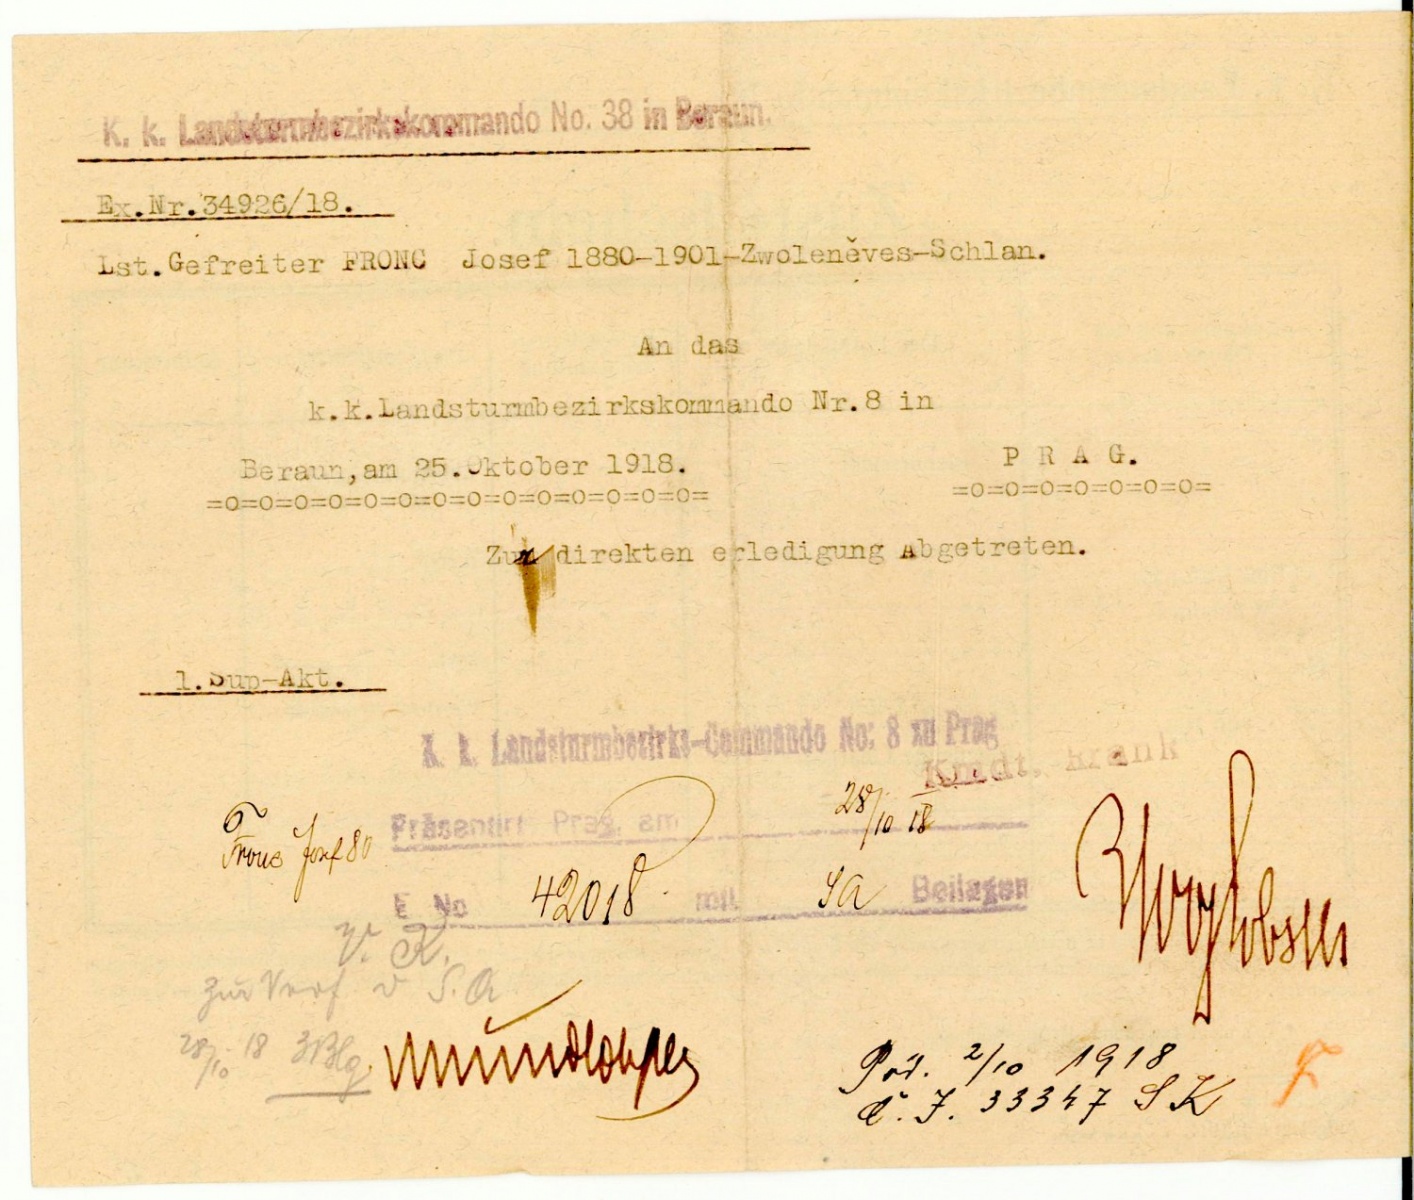 K. k. Landsturmbezirkskommando No. 38 in Beraun.
Ex.Nr.34926/18.
Lst.Gefreiter FRONC Josef 1880-1901-Zwoleněves-Schlan.
An das
k.k.Landsturmbezirkskommando Nr.8 in
Beraun,am 25.Oktober 1918.
P R A G.
=o=o=o=o=o=o=o=o=o=o=o=o=o=o=
=o=o=o=o=o=o=o=
Zur direkten erledigung Abgetreten.
1.Sup-Akt.
K. k. Landsturmbezirks-Commando No: 8 zu Prag
Kmdt. Krank
Präsentirt Prag, am 28/10 18
Fronc Josef 80
E No 42018 mit Beilagen
V. K.
zur Verf. S. A.
28/10 18 3 Blg.
2/10 1918
Č. J. 33347 S K